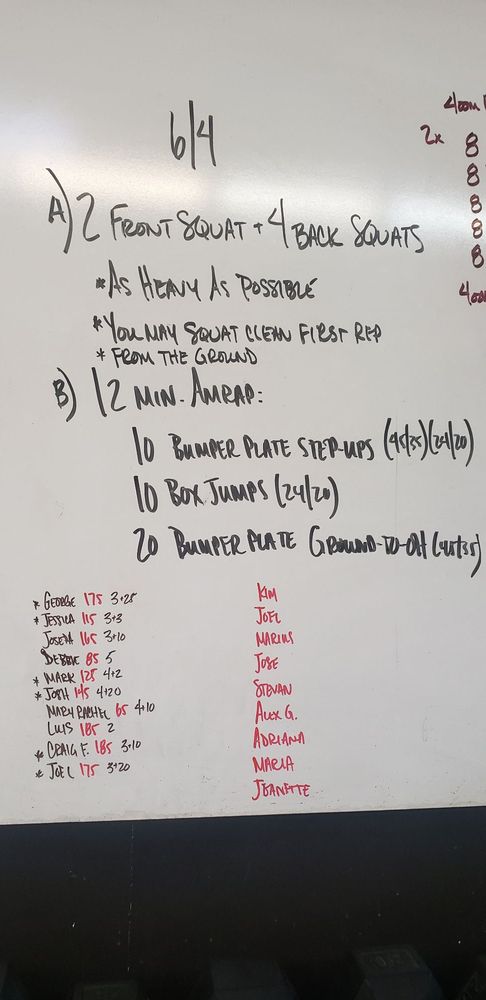 6/4
A) 2 FRONT SQUAT + 4 BACK SQUATS
*AS HEAVY AS POSSIBLE
*YOU MAY SQUAT CLEAN FIRST REP
* FROM THE GROUND
B) 12 MIN. AMRAP:
10 BUMPER PLATE STEP-UPS (45/35)(24/20)
10 BOX JUMPS (24/20)
20 BUMPER PLATE GROUND-TO-OH (45/35)
* GEORGE 175 3+25
* JESSICA 115 3+3
JOSEM 165 3+10
DEBBIE 85 5
* MARK 125 4+2
* JOSH 145 4+20
MARY RACHEL 65 4+10
LUIS 185 2
* CRAIG F. 185 3+10
* JOEL 175 3+20
KIM
JOEL
MARIUS
JOSE
STEVAN
ALEX G.
ADRIANA
MARIA
JEANETTE
400M
2x 8
8
8
8
8